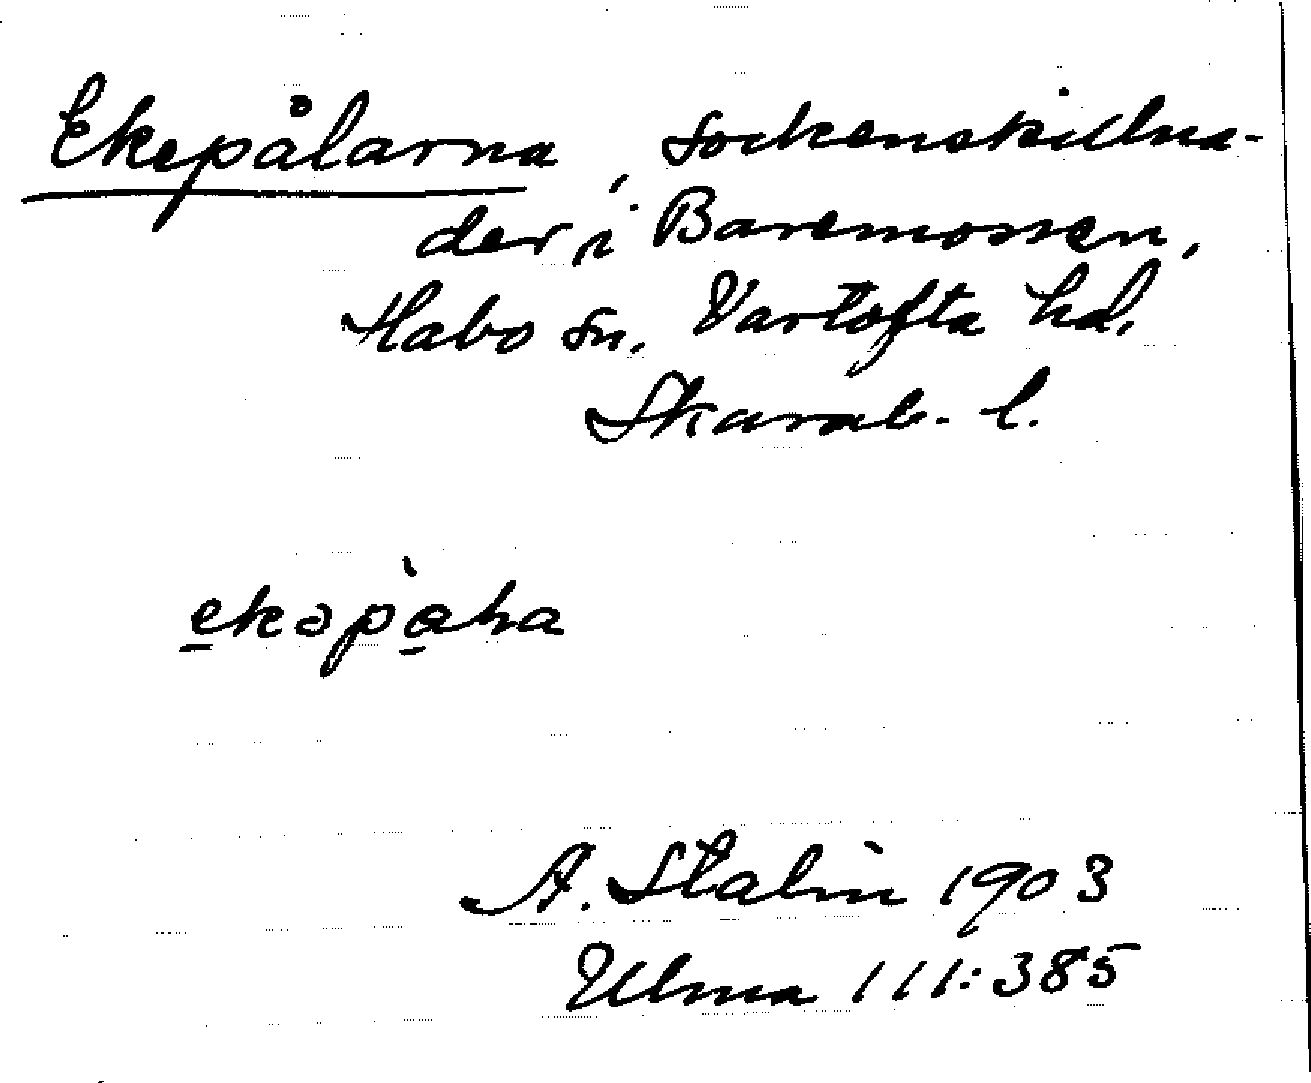 Ekepålarna, sockenskillna-
der i Baremossen,
Habo sn. Vartofta hd.
Skarab. l.
A. Stalin 1903
Ulma 111:385